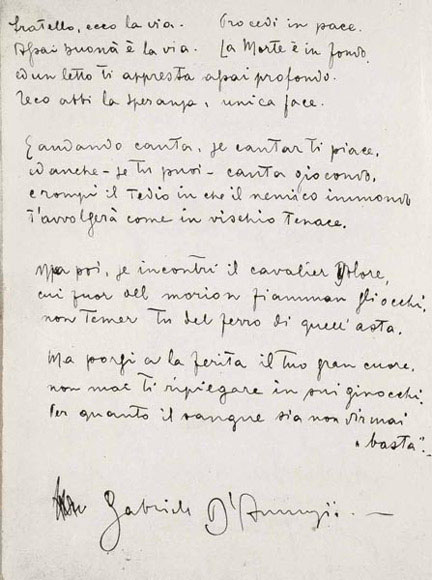 Fratello, ecco la via. Procedi in pace.
Assai buona è la via. La Morte è in fondo,
ed un letto ti appresta assai profondo.
Teco abbi la speranza, unica face.
E andando canta, se cantar ti piace,
ed anche - se tu puoi - canta giocondo,
e rompi il tedio in che il nemico immondo
t'avvolgerà come in vischio tenace.
Ma poi, se incontri il cavalier Dolore,
cui fuor del morion fiamman gli occhi,
non temer tu del ferro di quell'asta.
Ma porgi a la ferita il tuo gran cuore.
non mai ti ripiegare in sui ginocchi.
Per quanto il sangue sia non dir mai
"basta".
Gabriele D'Annunzio